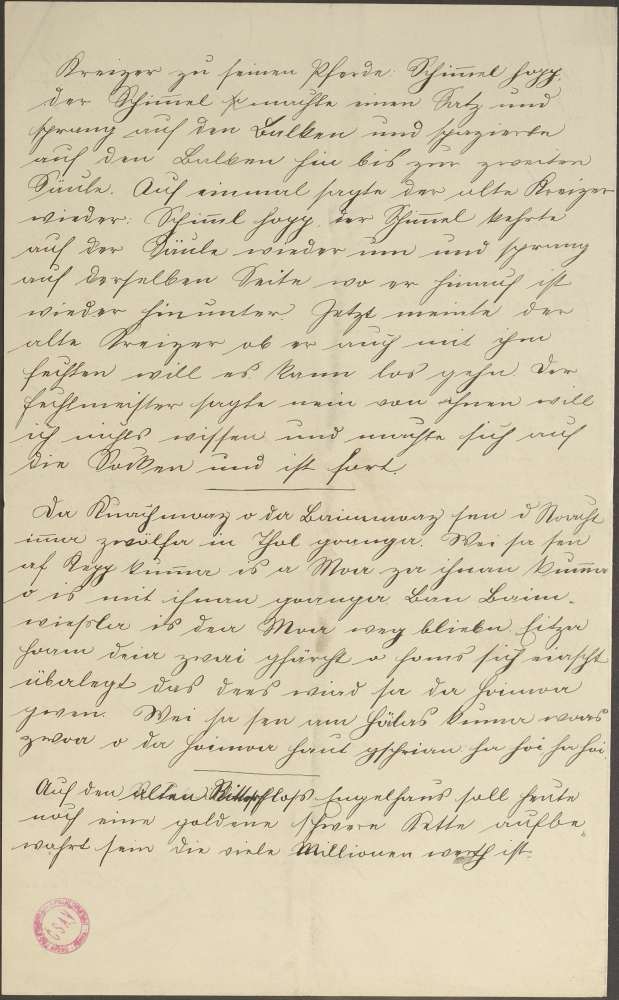 Kreizer zu seinen Pferde: Schimmel hopp.
der Schimmel machte einen Satz und
sprang auf den Balken und spazierte
auf den Balken hin bis zur zweiten
Säule. Auf einmal sagte der alte Kreizer
wieder: Schimmel hopp. der Schimmel kehrte
auf der Säule wieder um und sprang
auf derselben Seite wo er hinauf ist
wieder hinunter. Jetzt meinte der
alte Kreizer ob er auch mit ihm
fechten will es kann los gehn. Der
Fechtmeister sagte nein von Ihnen will
ich nichts wissen und machte sich auf
die Socken und ist fort.
Da Knachmoaz o da Baimmoaz sen d Noacht
imma zwölfa in Thol goanga. Wei sa sen
af Repp kumma is a Moa za ihnan kumma
o is mit ihnan goanga. Ban Baim-
wiesla is dea Moa weg bliebn. Eitza
hoam deia zwai gfärcht o homs sich eiascht
übalegt das dees wiad sa da Hoimoa
gwen. Wei sa sen am Hälas kumma woas
zwoa o da Hoimoa haut gschrian ha hoi ha hoi.
Auf den alten schloß Engelhaus soll heute
noch eine goldene schwere Kette aufbe-
wahrt sein die viele Millionen werth ist.
ČSAV